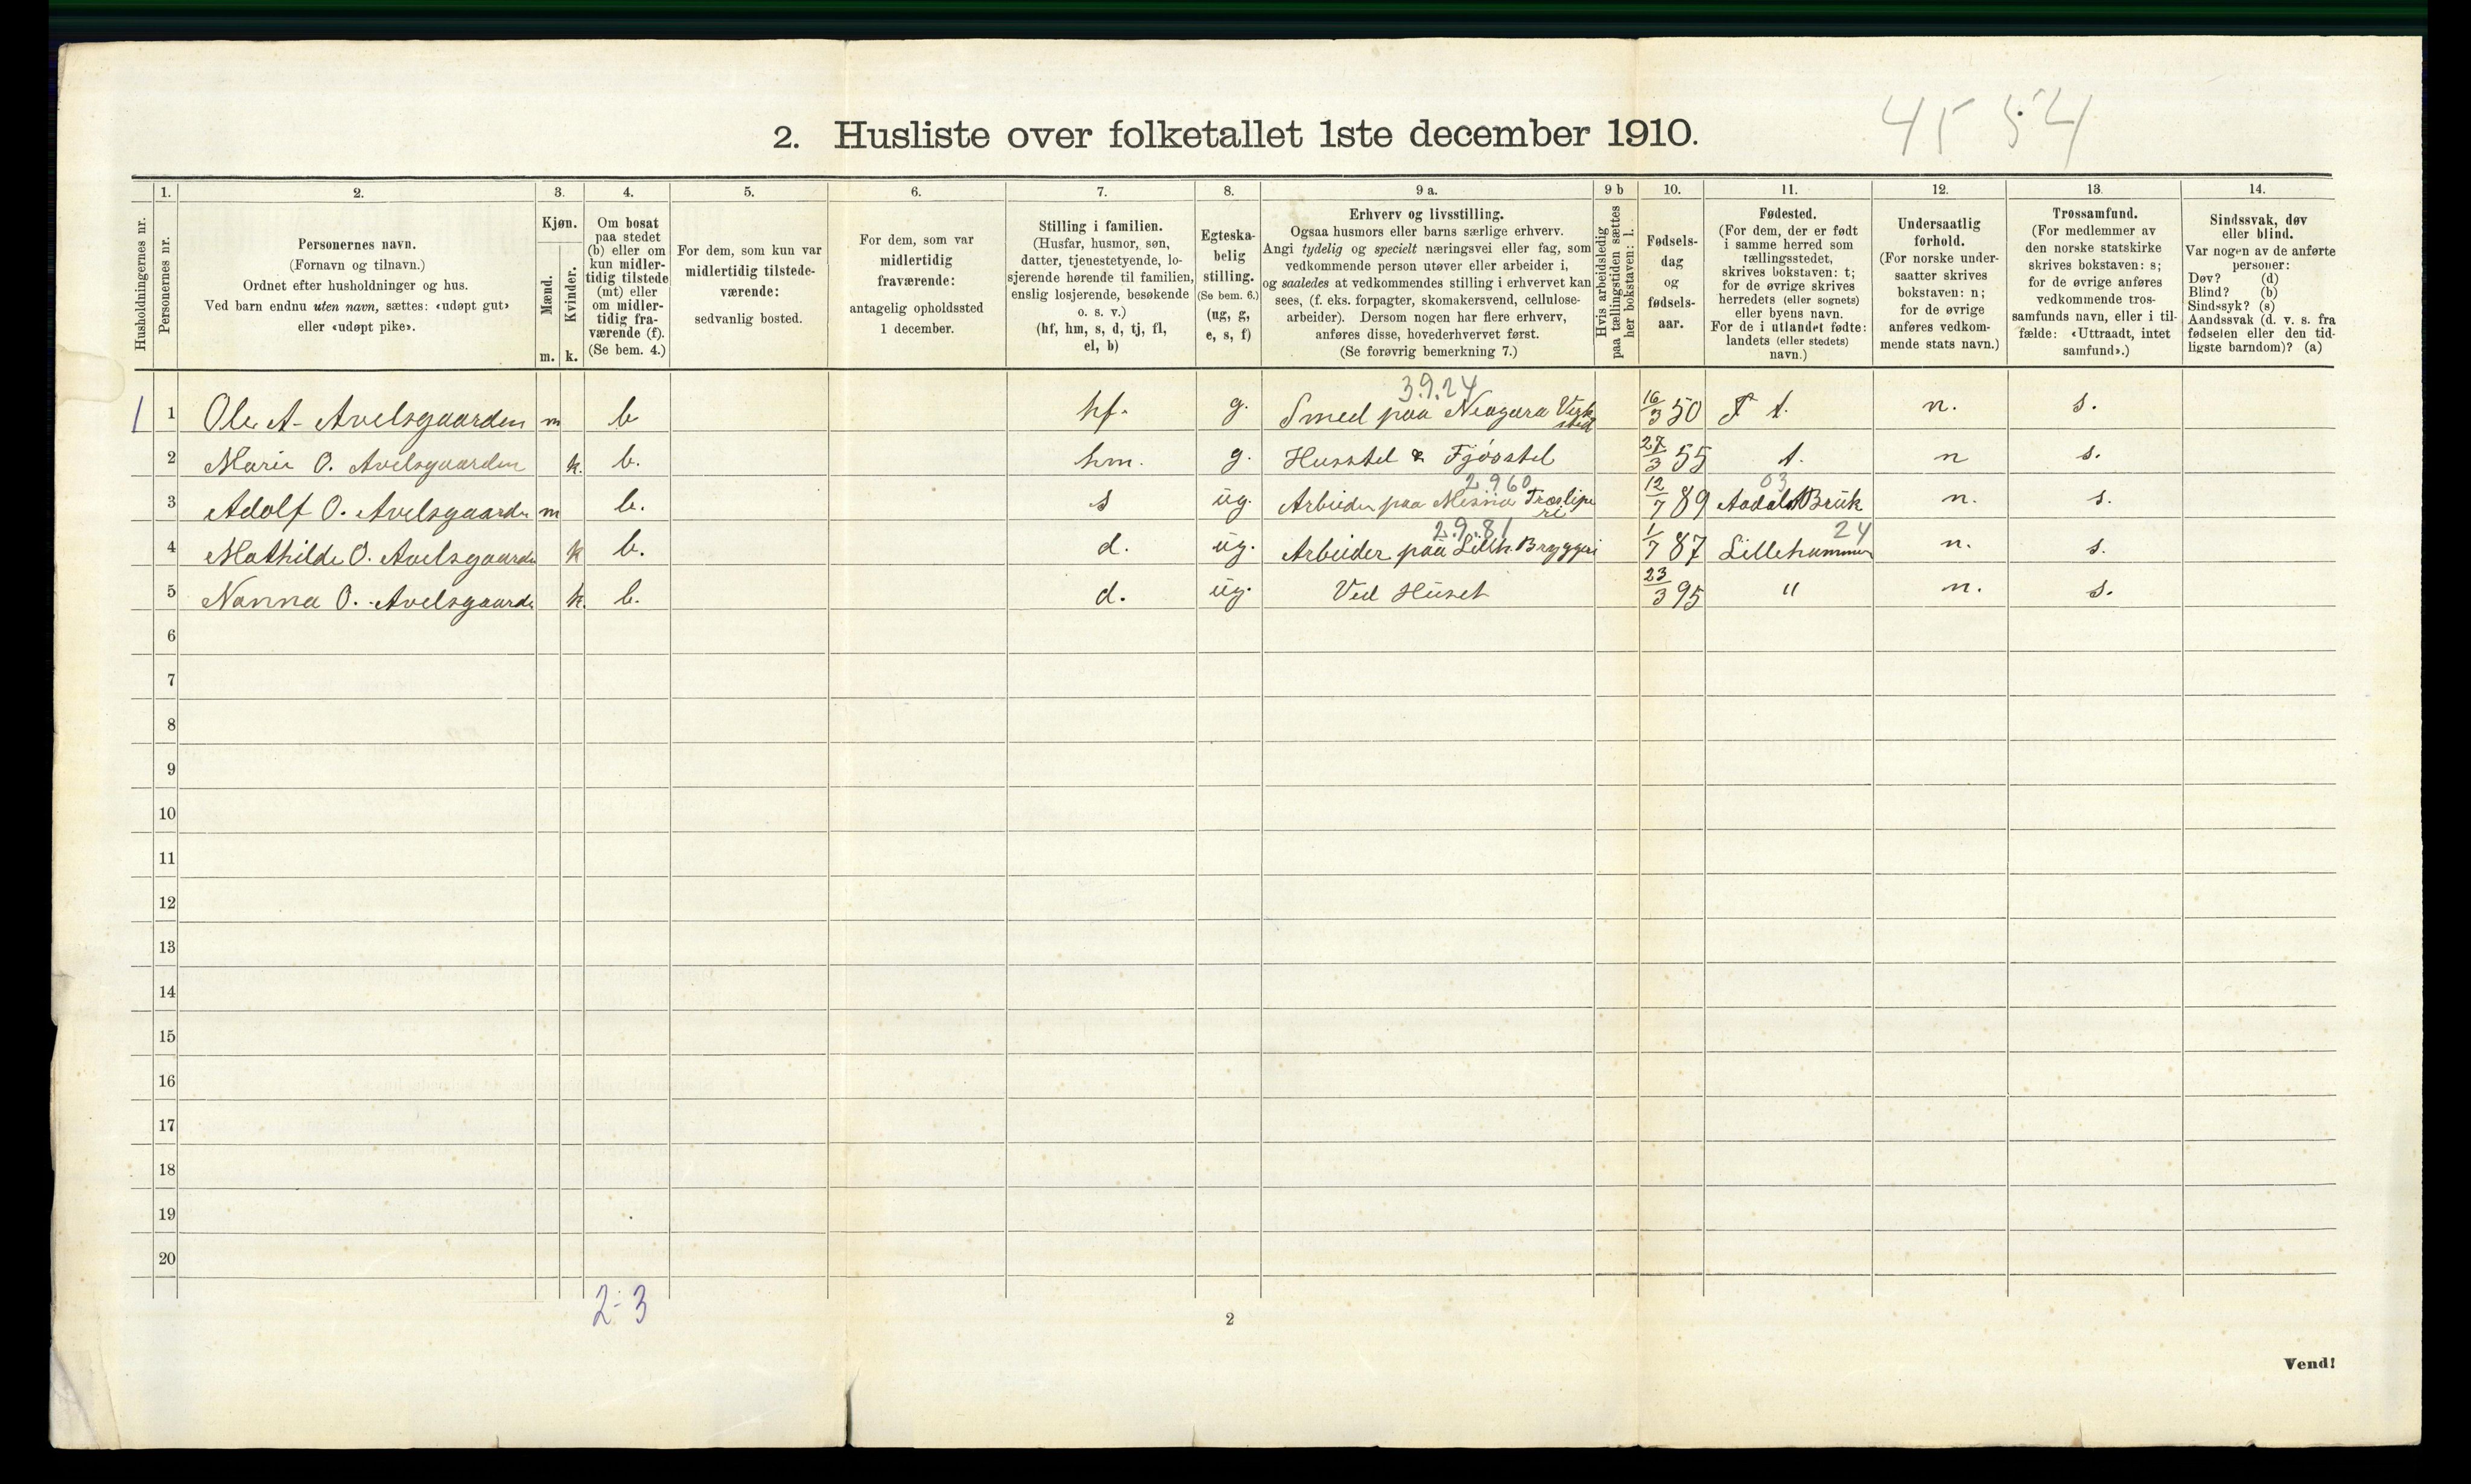 45 54
2. Husliste over folketallet 1ste december 1910.
Husholdningernes nr.
1.
Personernes nr.
2.
Personernes navn.
(Fornavn og tilnavn.)
Ordnet efter husholdninger og hus.
Ved barn endnu uten navn, sættes: «udøpt gut»
eller «udøpt pike».
3.
Kjøn.
Mænd.
m.
Kvinder.
k.
4.
Om bosat
paa stedet
(b) eller om
kun midler-
tidig tilstede
(mt) eller
om midler-
tidig fra-
værende (f).
(Se bem. 4.)
5.
For dem, som kun var
midlertidig tilstede-
værende:
sedvanlig bosted.
6.
For dem, som var
midlertidig
fraværende:
antagelig opholdssted
1 december.
7.
Stilling i familien.
(Husfar, husmor, søn,
datter, tjenestetyende, lo-
sjerende hørende til familien,
enslig losjerende, besøkende
o. s. v.)
(hf, hm, s, d, tj, fl,
el, b)
8.
Egteska-
belig
stilling.
(Se bem. 6.)
(ug, g,
e, s, f)
9 a.
Erhverv og livsstilling.
Ogsaa husmors eller barns særlige erhverv.
Angi tydelig og specielt næringsvei eller fag, som
vedkommende person utøver eller arbeider i,
og saaledes at vedkommendes stilling i erhvervet kan
sees, (f. eks. forpagter, skomakersvend, cellulose-
arbeider). Dersom nogen har flere erhverv,
anføres disse, hovederhvervet først.
(Se forøvrig bemerkning 7.)
9 b
Hvis arbeidsledig
paa tællingstiden sættes
her bokstaven: l.
10.
Fødsels-
dag
og
fødsels-
aar.
11.
Fødested.
(For dem, der er født
i samme herred som
tællingsstedet,
skrives bokstaven: t;
for de øvrige skrives
herredets (eller sognets)
eller byens navn.
For de i utlandet fødte:
landets (eller stedets)
navn.)
12.
Undersaatlig
forhold.
(For norske under-
saatter skrives
bokstaven: n;
for de øvrige
anføres vedkom-
mende stats navn.)
13.
Trossamfund.
(For medlemmer av
den norske statskirke
skrives bokstaven: s;
for de øvrige anføres
vedkommende tros-
samfunds navn, eller i til-
fælde: «Uttraadt, intet
samfund».)
14.
Sindssvak, døv
eller blind.
Var nogen av de anførte
personer:
Døv? (d)
Blind? (b)
Sindssyk? (s)
Aandssvak (d. v. s. fra
fødselen eller den tid-
ligste barndom)? (a)
3.9.24
1 1 Ole A. Avelsgaarden m b hf. g. Smed paa Niagara Verksted 16/3 50 t. n. s.
2 Marie O. Avelsgaarden k. b. hm. g. Husstel & Fjøsstel 27/3 55 t. n s.
2.960 03
3 Adolf O. Avelsgaarde m b. s ug. Arbeider paa Mesna Træsliperi 12/7 89 Aadals Bruk n. s.
2.9.81 24
4 Mathilde O. Avelsgaarde k b. d. ug. Arbeider paa Lilleh. Bryggeri 1/7 87 Lillehammer n. s.
5 Nanna O. Avelsgaarde k. b. d. ug. Ved Huset 23/3 95 " n. s.
6
7
8
9
10
11
12
13
14
15
16
17
18
19
20
2-3
2
Vend!